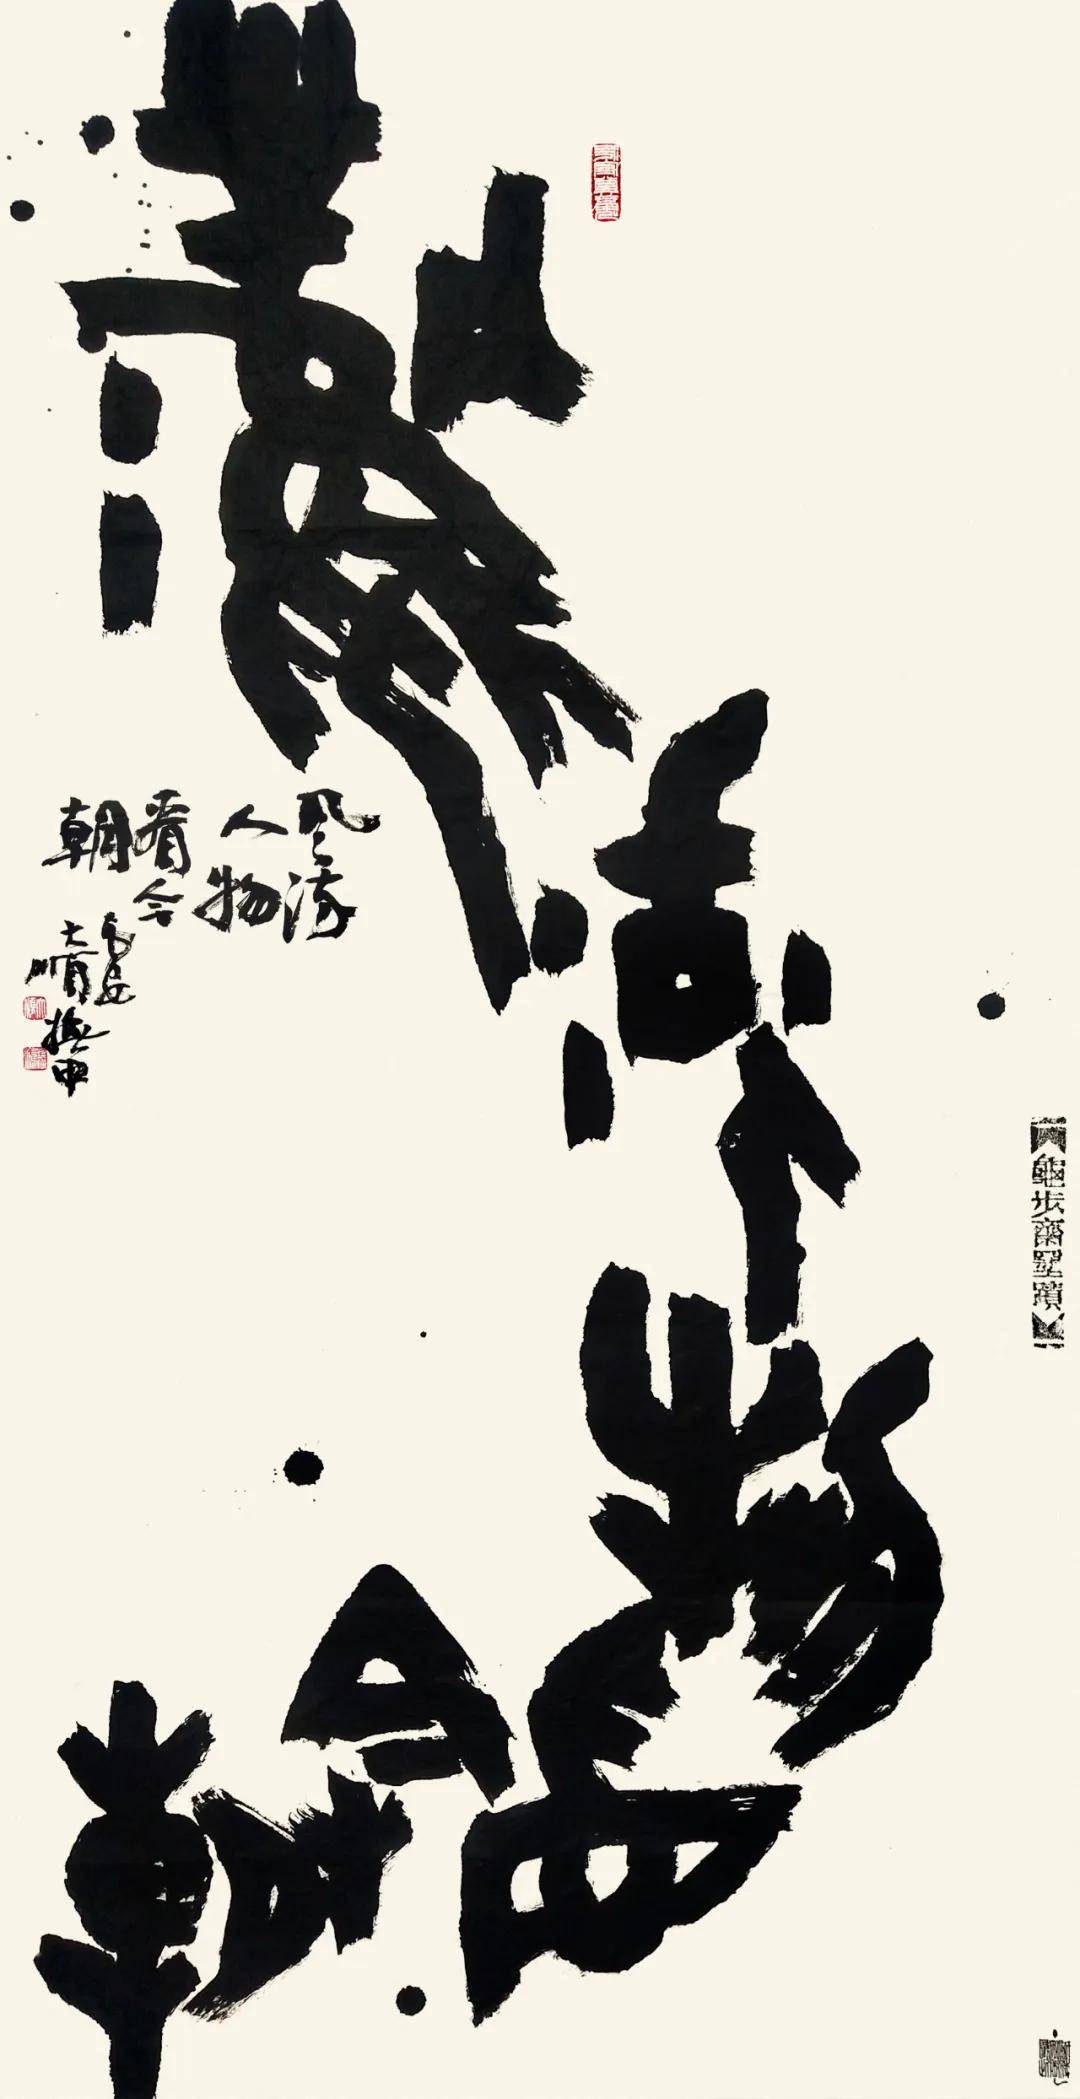 風流人物看今朝
风流
人物
看今
朝
龜步齋墨蹟